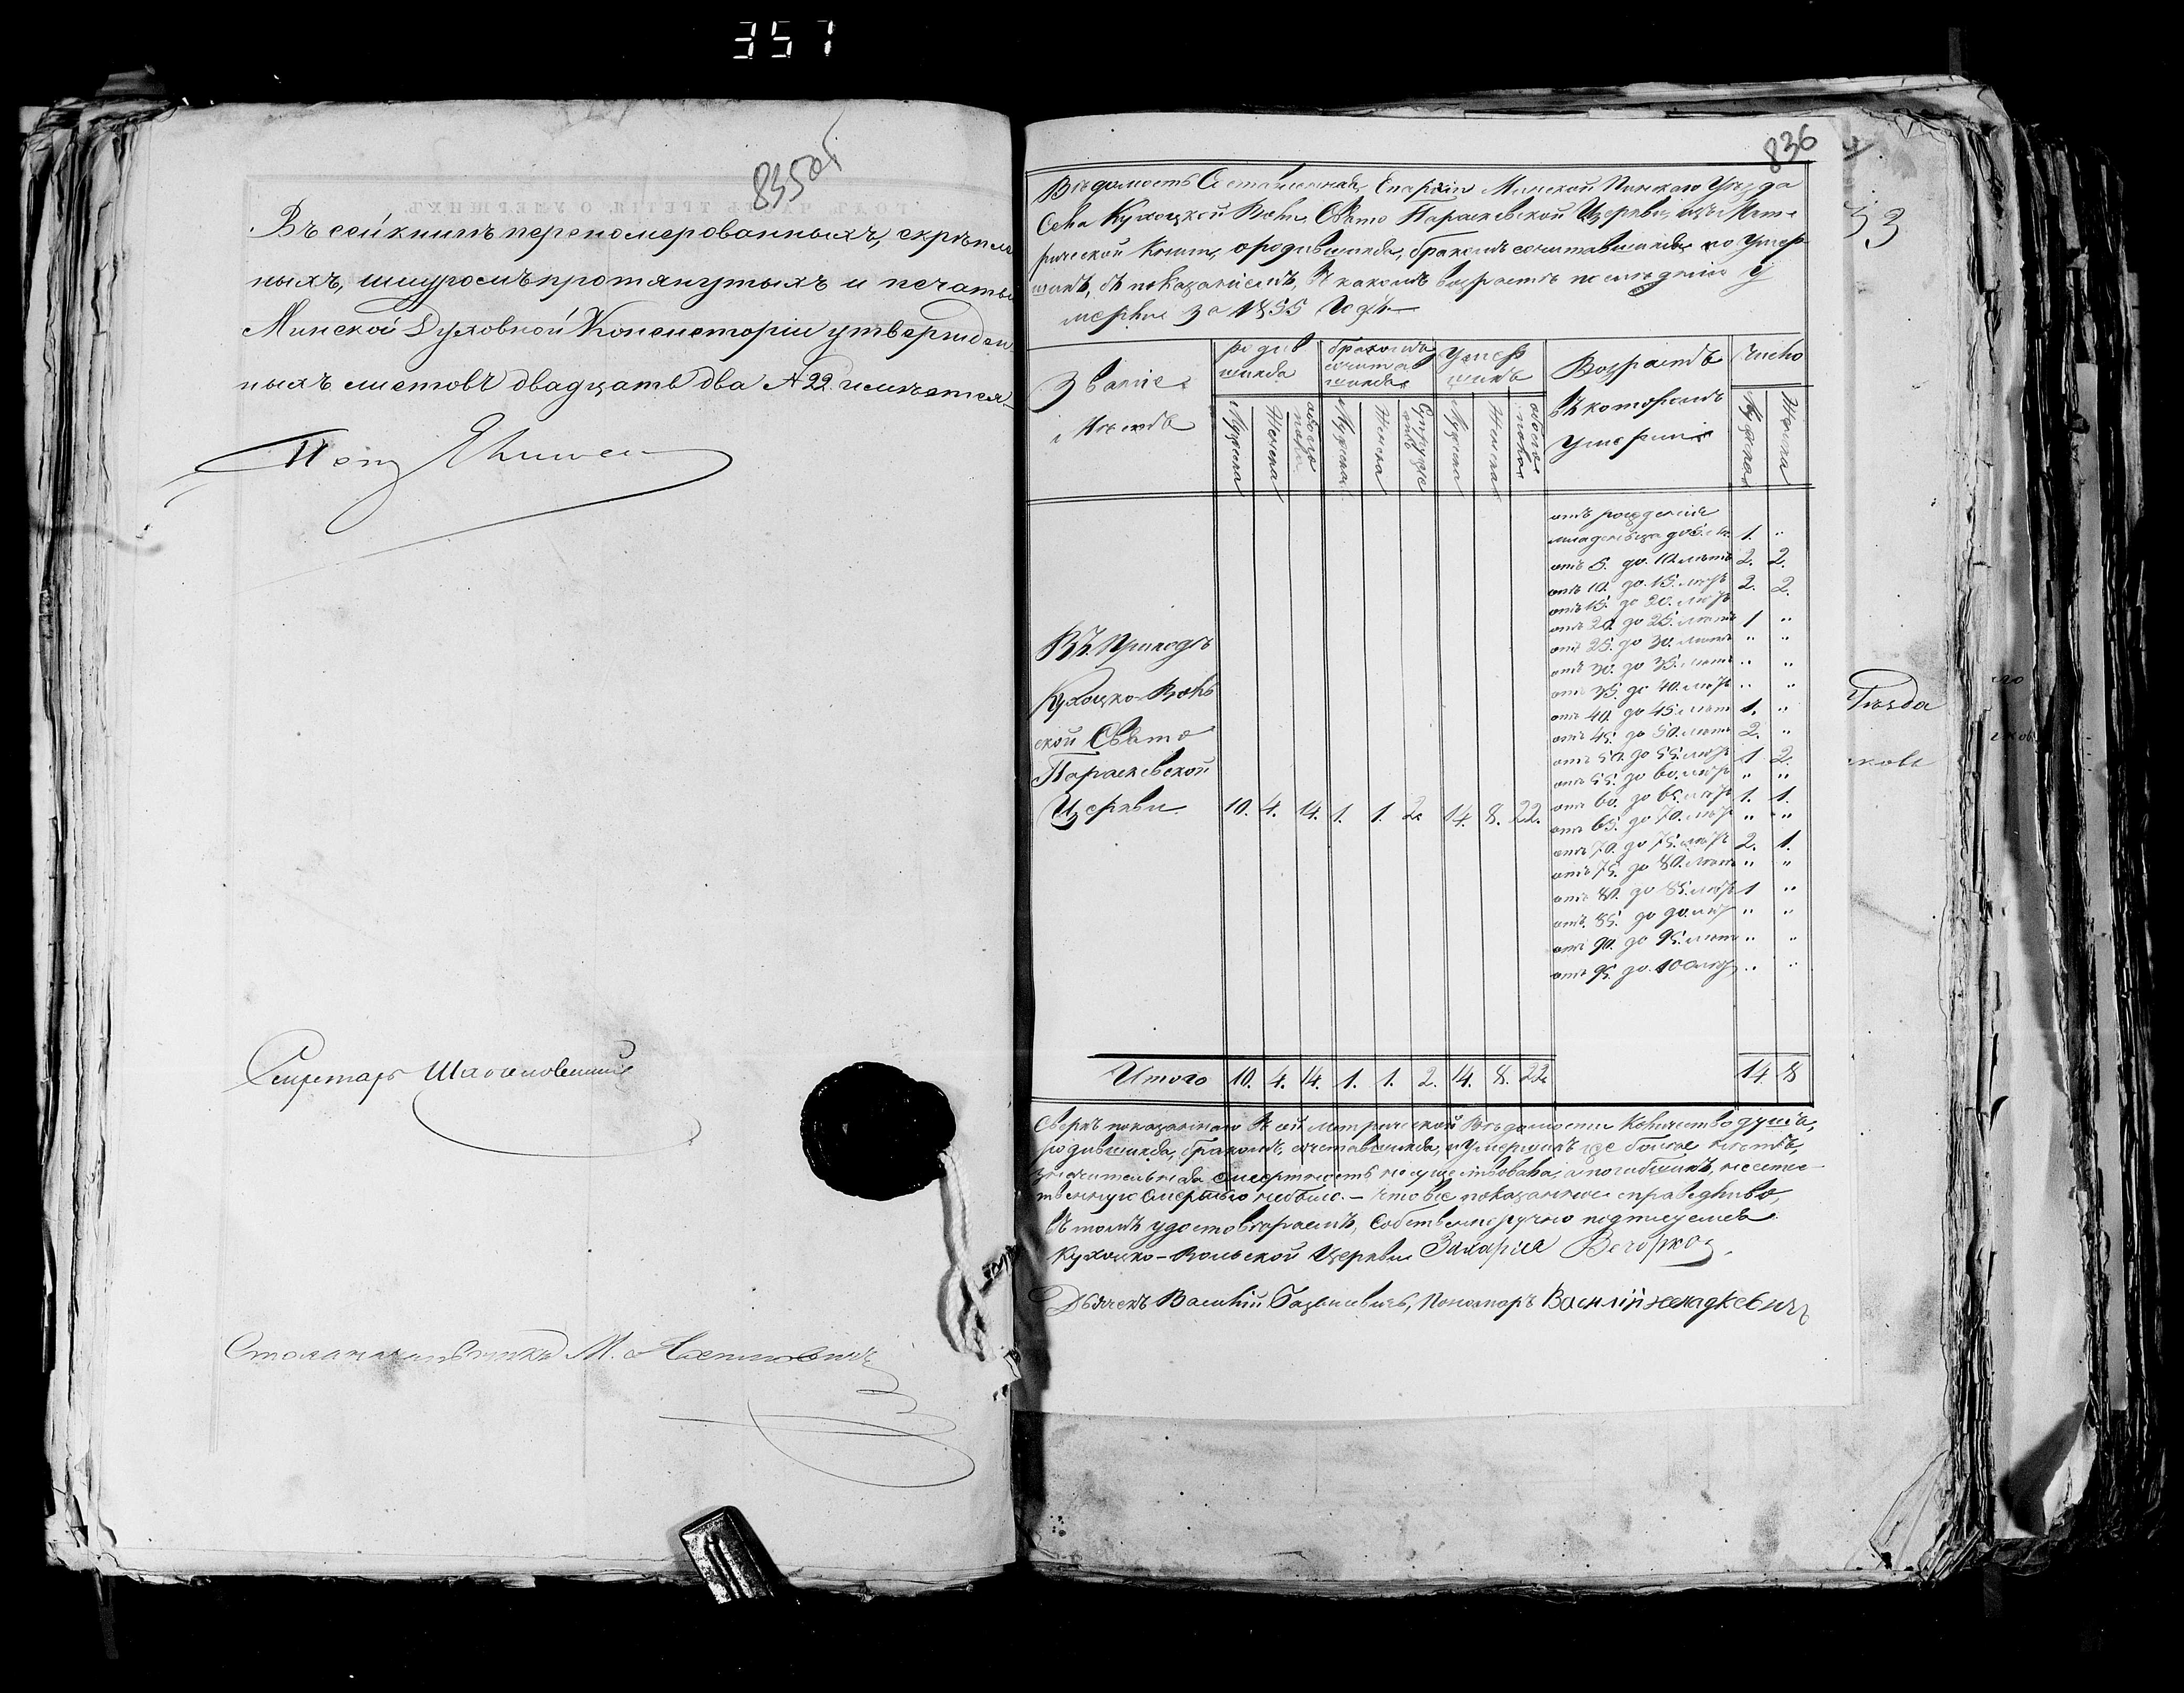 357
835об
Въ сей книгѣ перенумерованныхъ, скрѣплен
ныхъ, шнуромъ протянутыхъ и печатью
Минской Духовной Консисторіи утвержден
ныхъ листовъ двадцать два № 22. имѣется
Секретарь
Столоначальникъ М.
836
Вѣдомость Составленная, Епархіи Минской Пинскаго Уѣзда
Села Кухоцкой Воли, Свято Параскевской Церкви, изъ Мет
рической Книги, о родившихся, бракомъ сочитавшихся, и о Умер
шихъ, съ показаніемъ, въ какомъ возрастѣ послѣдніе у
мерли за 1855 Годъ.
Званіе
родив
шихся
бракомъ
сочитав
шихся
Умер
шихъ
Возрастъ
въ которомъ
Умерли
Число
Мужска
Женска
обоего
пола
Мужска
Женска
Мужска
Женска
обоего
пола
Мужска
Женска
отъ рожденія
младенцы до 5. лѣ. 1. "
отъ 5. до 10 лѣтъ 2. 2.
отъ 10. до 15. лѣтъ 2. 2.
отъ 15. до 20. лѣтъ
отъ 20. до 25. лѣтъ 1 "
отъ 25. до 30. лѣтъ " "
отъ 30. до 35. лѣтъ " "
отъ 35. до 40. лѣтъ " "
отъ 40. до 45. лѣтъ 1. "
отъ 45. до 50. лѣтъ 2. "
отъ 50. до 55. лѣтъ 1 2.
отъ 55. до 60. лѣтъ " "
отъ 60. до 65. лѣтъ 1. 1.
отъ 65. до 70. лѣтъ " "
отъ 70. до 75. лѣтъ 2. 1.
отъ 75. до 80. лѣтъ " "
отъ 80. до 85. лѣтъ 1 "
отъ 85. до 90. лѣтъ " "
отъ 90. до 95. лѣтъ " "
отъ 95. до 100 лѣтъ " "
Въ Приходѣ
Кухоцко-Воль
ской Свято
Параскевской
Церкви 10. 4. 14. 1. 1. 2. 14. 8. 22.
Итого 10. 4. 14. 1. 1. 2. 14. 8. 22. 14 8
Сверхъ показаннаго въ сей метрической Вѣдомости Количества душъ,
родившихся, бракомъ, сочетавшихся, и умершихъ где болѣе нѣтъ,
значительная смертность не существовала, а погибшихъ, неестес
твенную Смертью небыло. – что все показанное справедливо,
въ томъ удостовѣряемъ, Собственноручно подписуемся
Кухоцко-Вольской Церкви Захарія
Дьячекъ Василій Пономарь Василій
33
Уѣзда